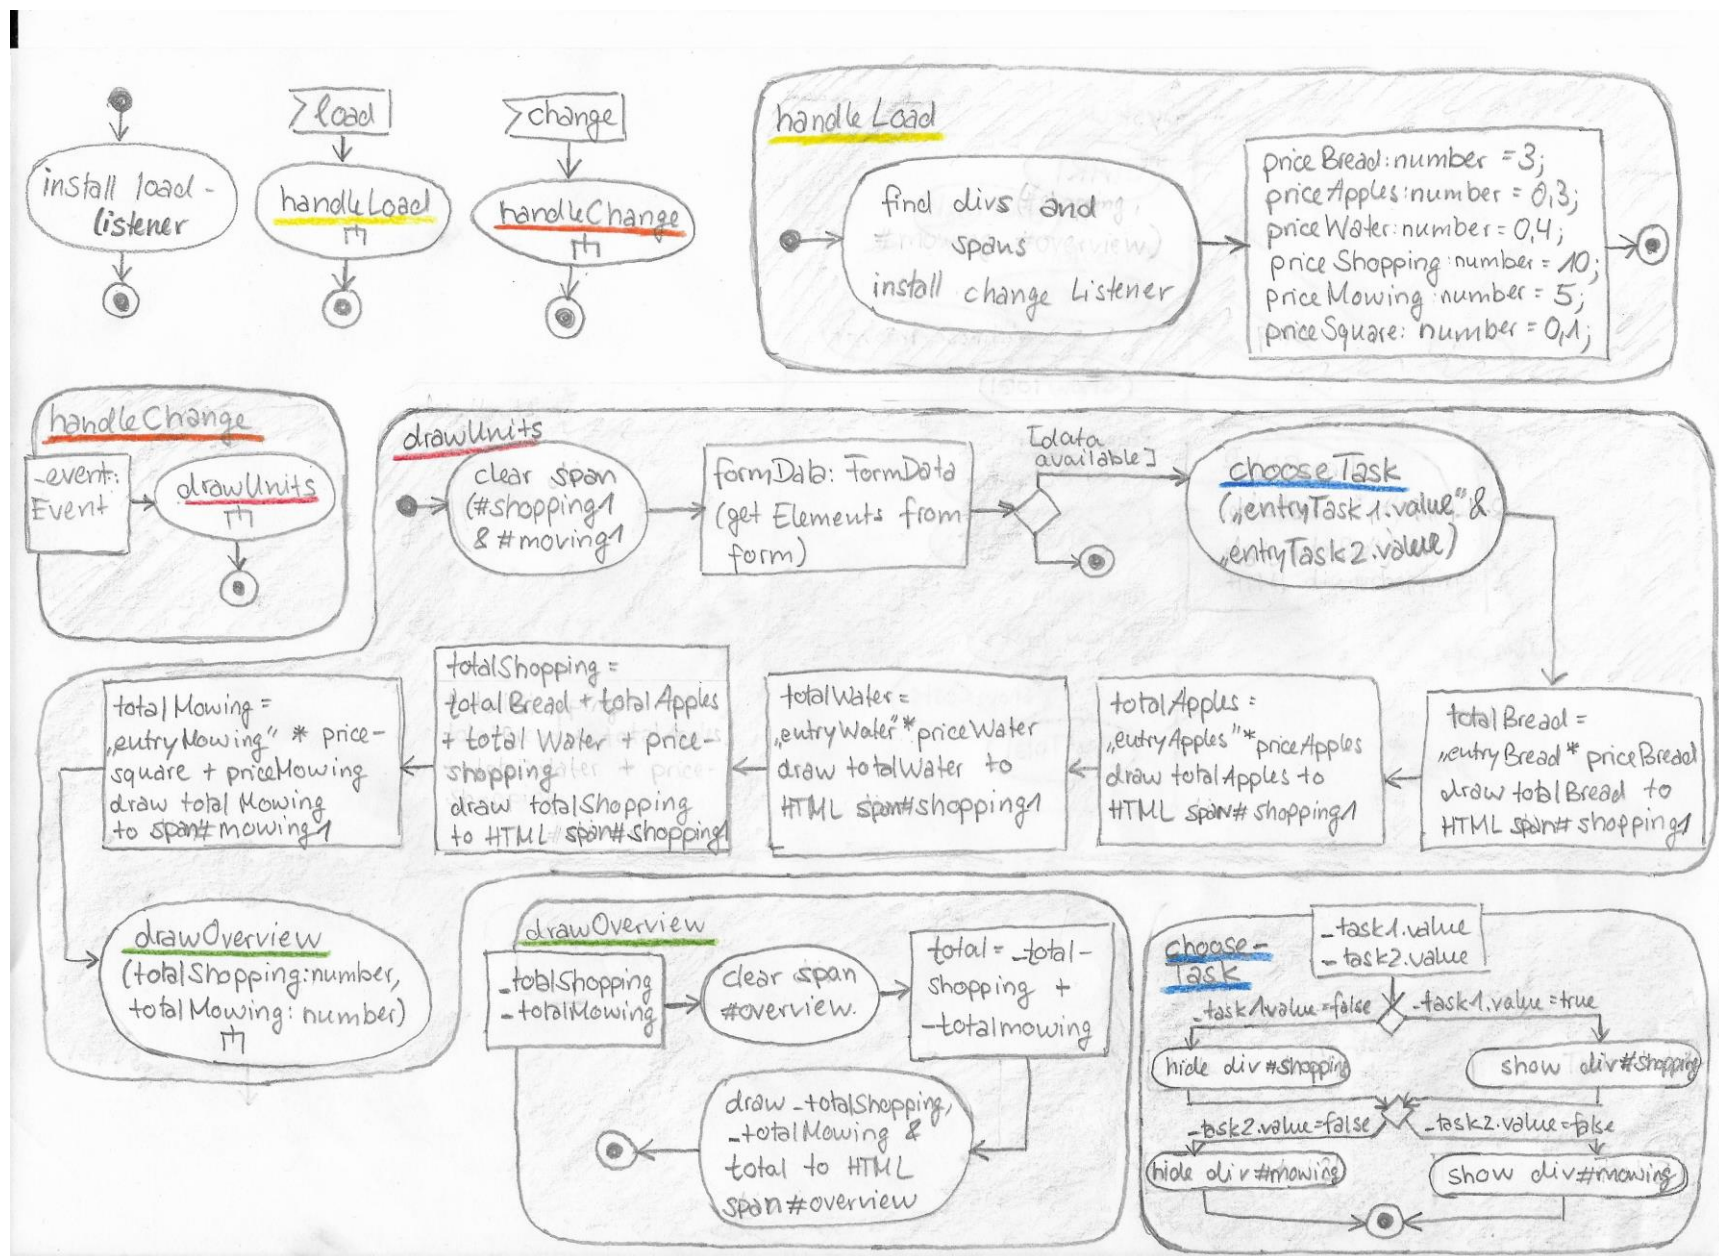 install load-
listener
load
handleLoad
change
handleChange
handleLoad
find divs and
spans
install change Listener
priceBread:number =3;
priceApples:number = 0,3;
priceWater:number = 0,4;
priceShopping:number = 10;
priceMowing:number = 5;
priceSquare: number = 0,1;
handleChange
_event:
Event
drawUnits
drawUnits
clear span
(#shopping1
& #moving1
formData: FormData
(get Elements from
form)
[data
available]
chooseTask
(„entryTask1.value" &
„entryTask2.value)
totalBread =
„entryBread * priceBread
draw totalBread to
HTML span# shopping1
totalApples =
„entryApples" * priceApples
draw totalApples to
HTML span# shopping1
totalWater =
„entryWater" * priceWater
draw totalWater to
HTML span#shopping1
totalShopping =
totalBread + totalApples
+ total Water + price-
shopping
draw totalShopping
to HTML span#shopping1
totalMowing =
„entryMowing" * price-
square + priceMowing
draw total Mowing
to span#mowing1
drawOverview
(totalShopping:number,
totalMowing: number)
drawOverview
_totalShopping
_totalMowing
clear span
#overview.
total = _total-
shopping +
-totalmowing
draw _totalShopping,
_totalMowing &
total to HTML
span#overview
choose-
Task
_task1.value
_task2.value
_task1.value=false
_task1.value=true
hide div#shopping
show div#shopping
_task2.value=false
_task2.value=false
hide div#mowing
show div#mowing